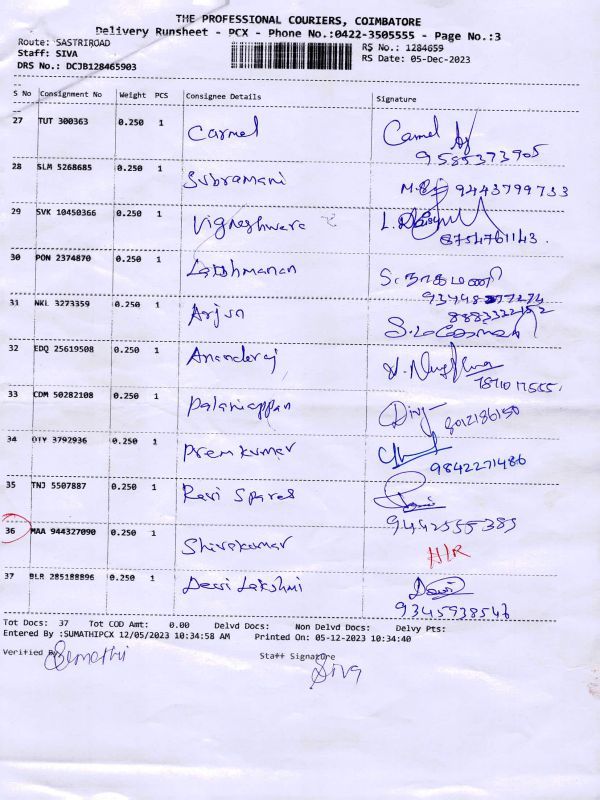 THE PROFESSIONAL COURIERS, COIMBATORE
Delivery Runsheet - PCX - Phone No.:0422-3505555 - Page No.:3
Route: SASTRIROAD RS No.: 1284659
Staff: SIVA RS Date: 05-Dec-2023
DRS No.: DCJB128465903
S No Consignment No Weight PCS Consignee Details Signature
27 TUT 300363 0.250 1 Carmel Carmel
9585373905
28 SLM 5268685 0.250 1 Subramani 9443799733
29 SVK 10450366 0.250 1 Vigneshwara L.
8754761143.
30 PON 2374870 0.250 1 Lakshmanan S. நாகமணி
31 NKL 3273359 0.250 1 Arjun
32 EDQ 25619508 0.250 1 Ananderaj
33 CDM 50282108 0.250 1 Palaniappan Divy
8012186150
34 DTY 3792936 0.250 1 Premkumar
9842271486
35 TNJ 5507887 0.250 1 Ravi Spares
9442555385
36 MAA 944327090 0.250 1 Shivakumar H/R
37 BLR 285188896 0.250 1 Devi Lakshmi Devi
9345938546
Tot Docs: 37 Tot COD Amt: 0.00 Delvd Docs: Non Delvd Docs: Delvy Pts:
Entered By :SUMATHIPCX 12/05/2023 10:34:58 AM Printed On: 05-12-2023 10:34:40
Verified By Staff Signature
Siva